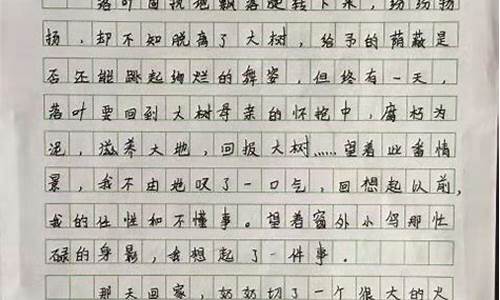 落叶固执地飘落旋转下来，纷纷扬
扬，却不知脱离了大树，给予的荫蔽是
否还能跳起绚烂的舞姿，但终有一天，
落叶要回到大树母亲的怀抱中，腐朽为
泥，滋养大地，回报大树……望着此番情
景，我不由地叹了一口气，回想起以前，
我的任性和不懂事。望着窗外小驾那忙
碌的身影，我想起了一件事。
那天回家，奶奶切了一个很大的火